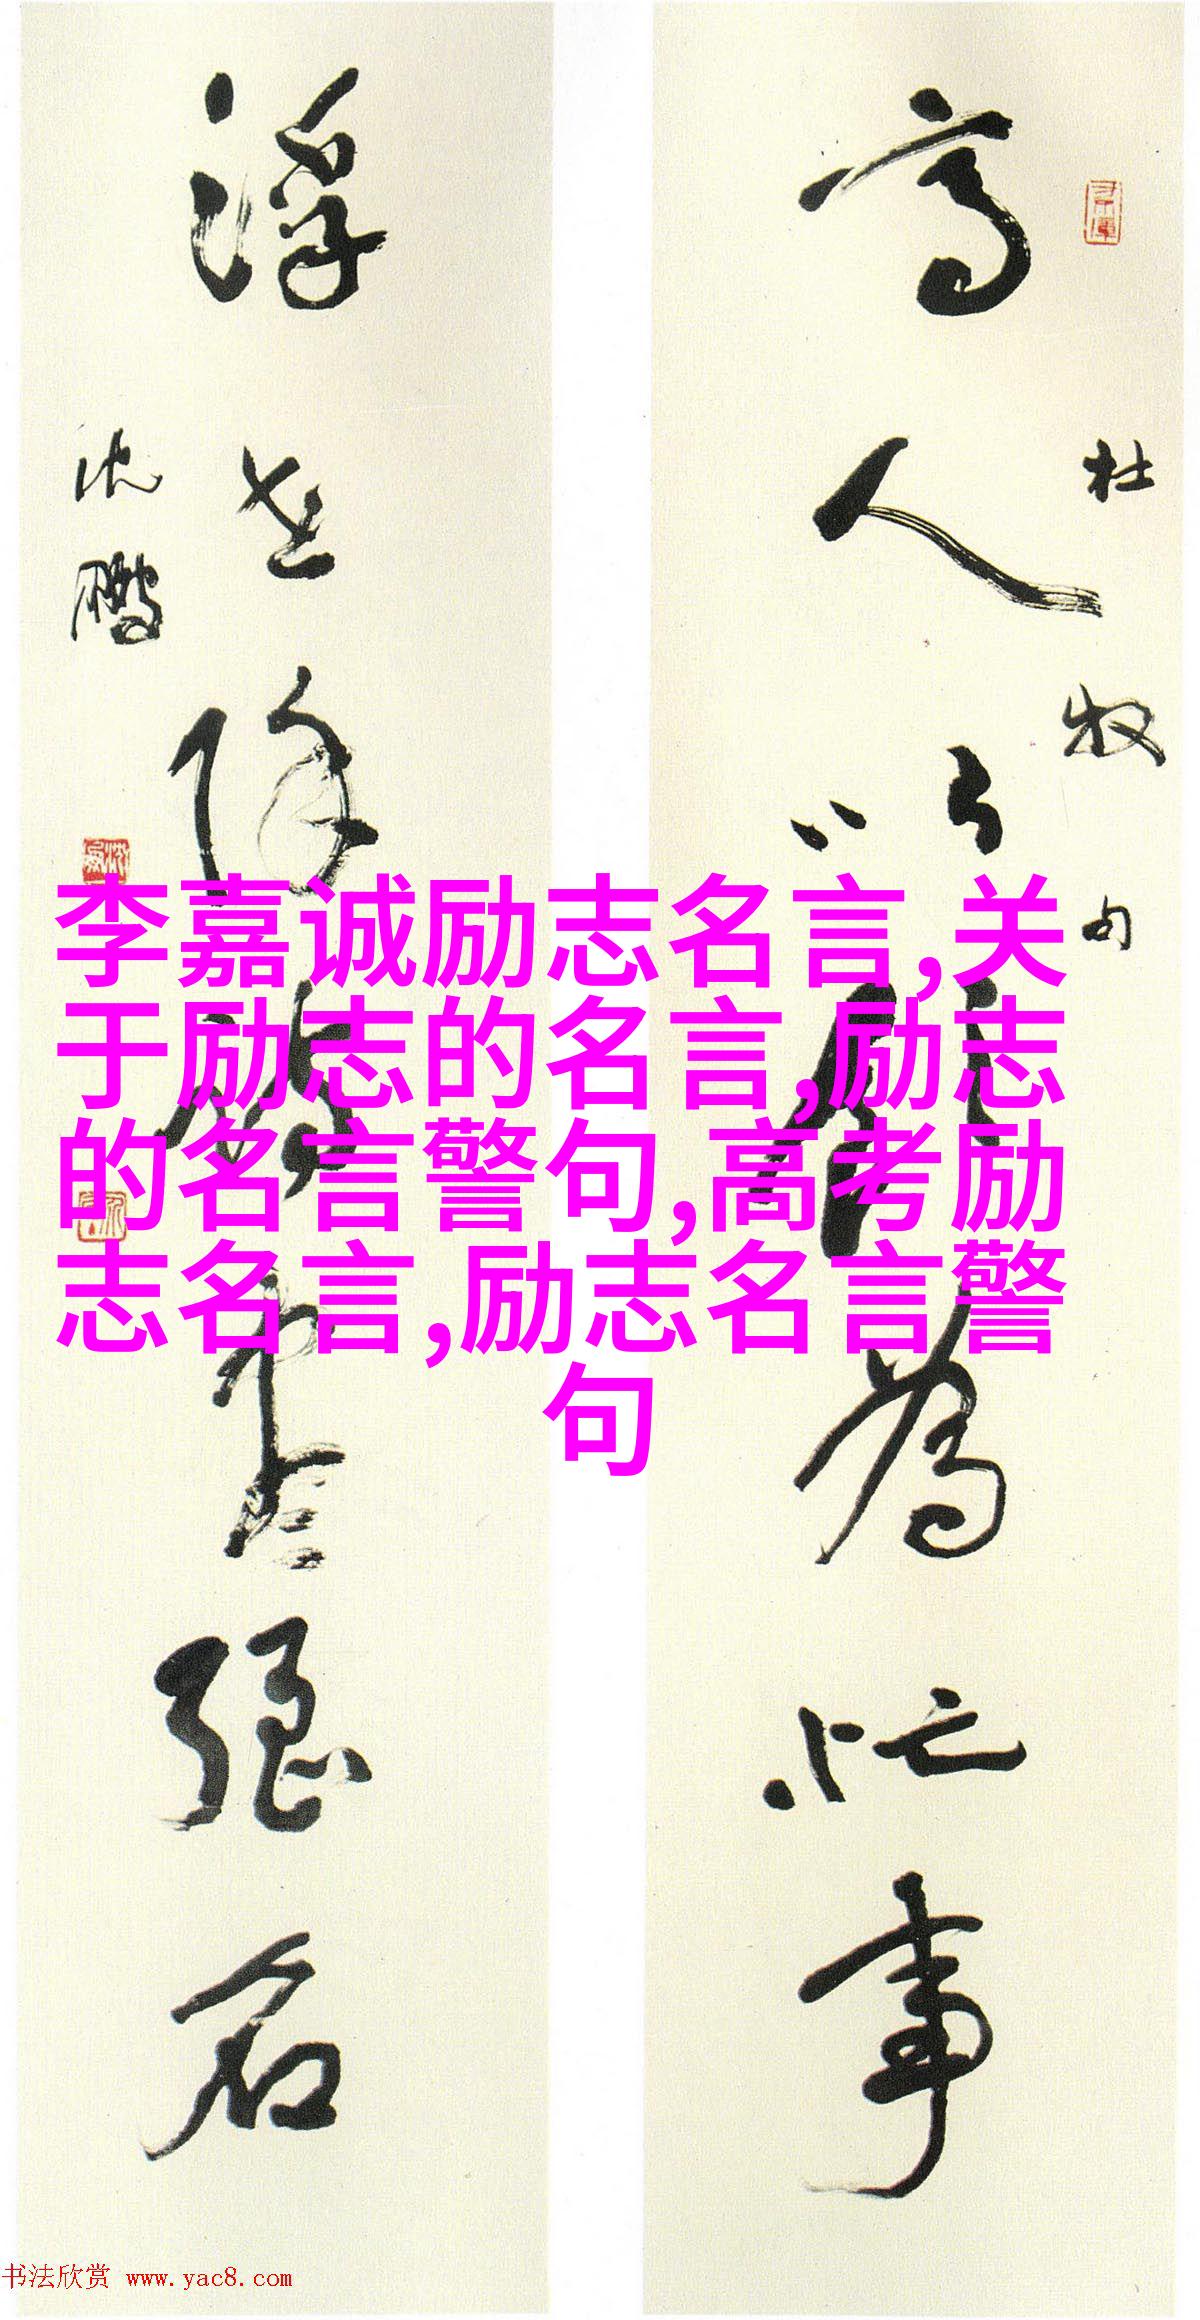 杜牧句
高人以飲為忙事
浮世除詩盡強名
沈鹏
李嘉诚励志名言,关
于励志的名言,励志
的名言警句,高考励
志名言,励志名言警
句
书法欣赏 www.yac8.com